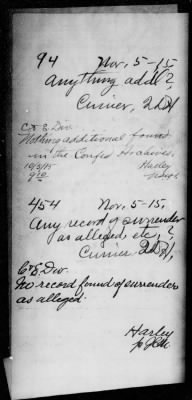 94 Nov. 5-15
Anything addl?
Currier, 2d
C & E Div
Nothing additional found
in the Confed Archives.
Harley
454 Nov. 5-15,
Any record of surrender
as alleged, etc.?
Currier 2d,
C&E. Div.
No record found of surrender
as alleged.
Harley